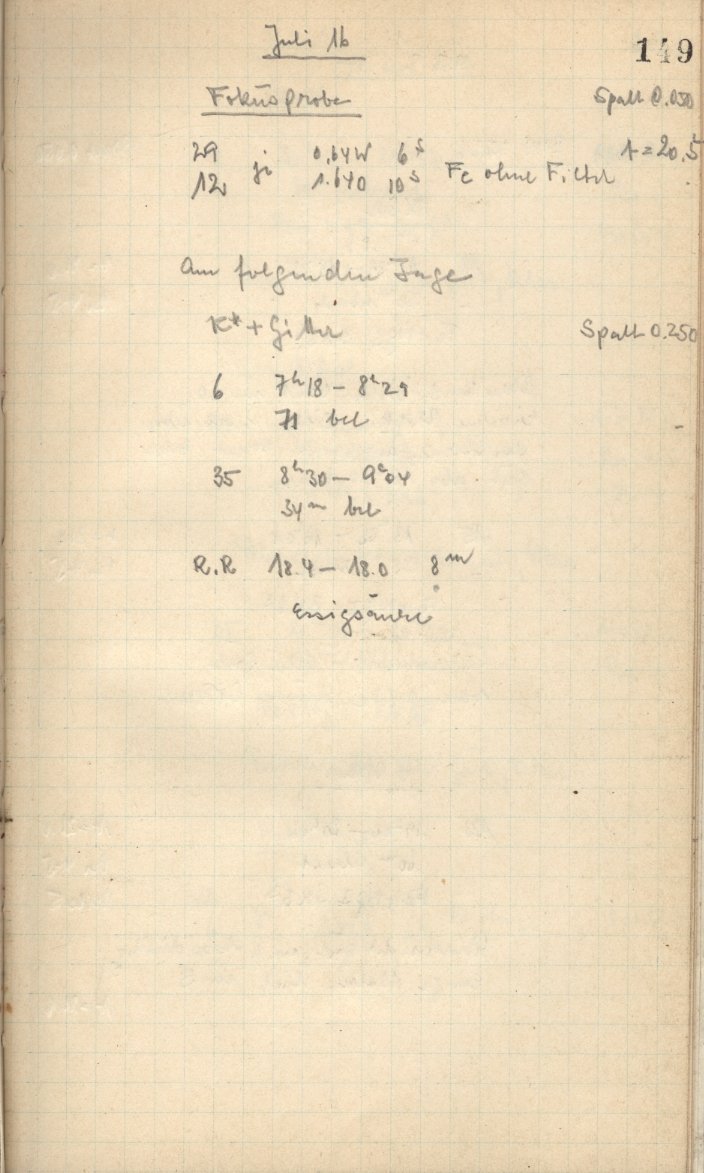 Juli 16
149
Fokusprobe
Spalt 0.050
29 je 0.64W 6s
t = 20.5
12 1.640 10s Fe ohne Filter
Am folgenden Tage
K* + Gitter
Spalt 0.250
6 7h18 – 8h29
71 bel
35 8h30 – 9h04
34m bel
R.R 18.4 – 18.0 8m
Essigsäure